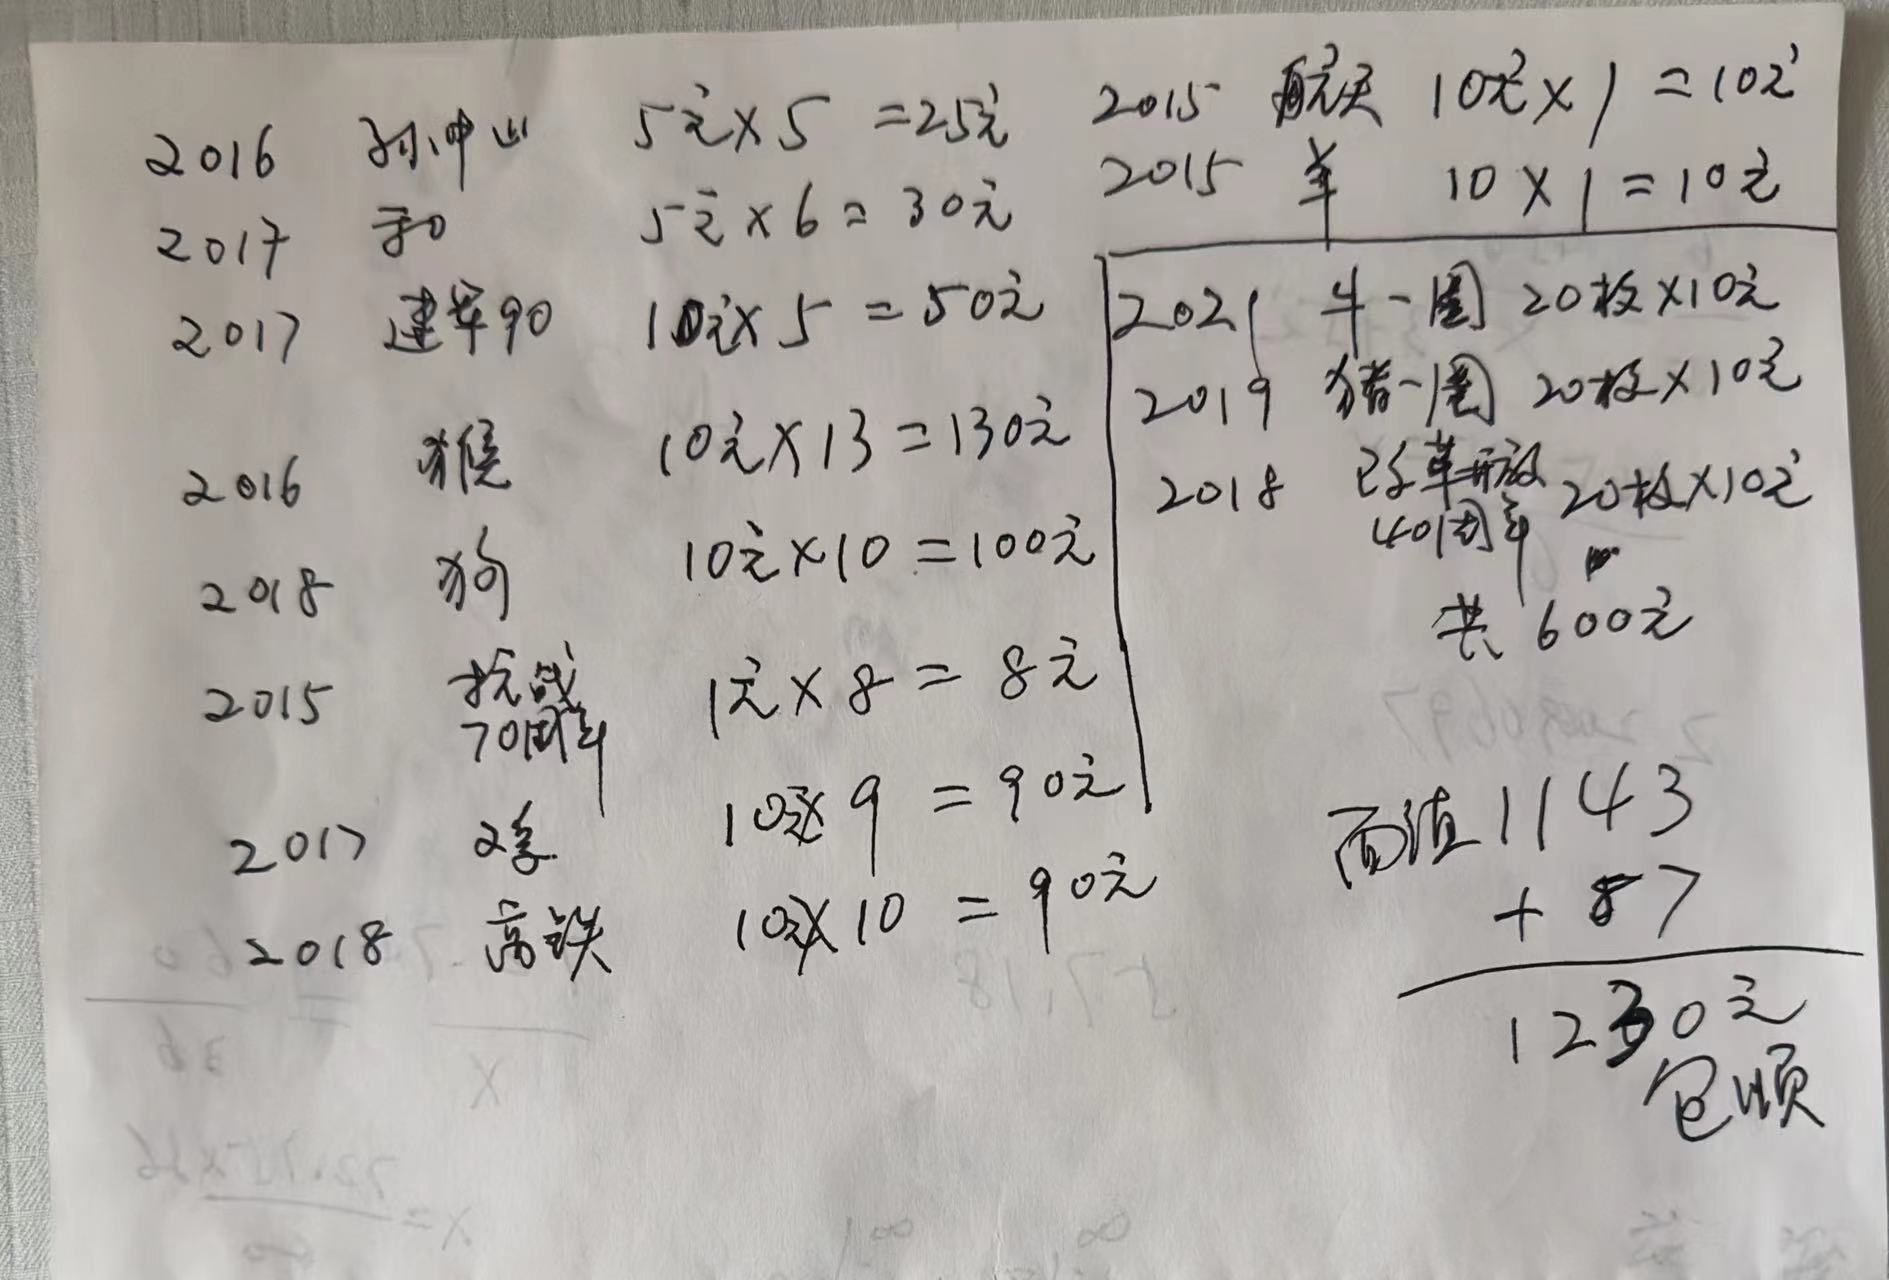 2016 孙中山 5元×5 =25元
2017 和 5元×6=30元
2017 建军90 10元×5=50元
2016 猴 10元×13=130元
2018 狗 10元×10=100元
2015 抗战 1元×8=8元
70周年
2017 鸡 10元×9=90元
2018 高铁 10元×10=90元
2015 航天 10元×1=10元
2015 羊 10×1=10元
2021 牛一圈 20枚×10元
2019 猪一圈 20枚×10元
2018 改革开放 20枚×10元
40周年
共600元
面值1143
+87
1230元
包顺